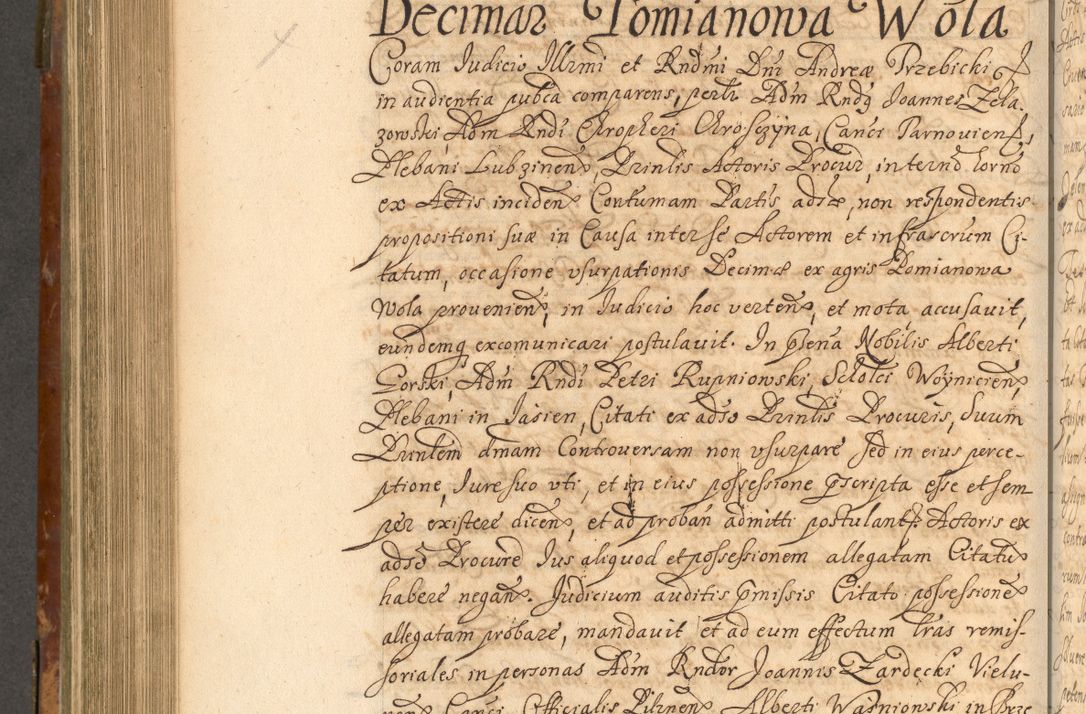 Decimas Pomianowa Wola
Coram Judicio Illrmi et Rndmi Dni Andreæ Trzebicki
in audientia pubca comparens, perlis Adm Rndg Joannes Zela-
zowski, Adm Rndi Chropheri Chrosczyna, Canci Tarnovien,
Plebani Lubzinen, Prinlis Actoris Procur, in termo horno
ex Actis inciden Contumam Partis adsæ, non respondentis
propositioni suæ in Causa inter se Actorem et infrascrum Ci-
tatum, occasione usurpationis Decimæ ex agris Pomianowa
Wola provenien, in Judicio hoc verten, et mota accusavit,
eundemq excomunicari postulavit. In pñena Nobilis Alberti
Gorski, Adm Rndi Petri Rupniowski, Scholci Woynicien,
Plebani in Jasien, Citati ex adso Prinlis Procuris, suum
Prinlem dmam Controversam non usurpare sed in eius perce-
ptione, Jure suo uti, et in eius possessione pscripta esse et sem
per existere dicen, et ad proban admitti postulant. Actoris ex
adso Procure Jus aliquod et possessionem allegatam Citatu
habere negan. Judicium auditis pmissis Citato possessione
allegatam probare, mandavit et ad eum effectum lras remis-
soriales in personas Adm Rndor Joannis Zardecki Vielu-
nen Canci Officialis Pilznen Alberti Wasniowski in Brze